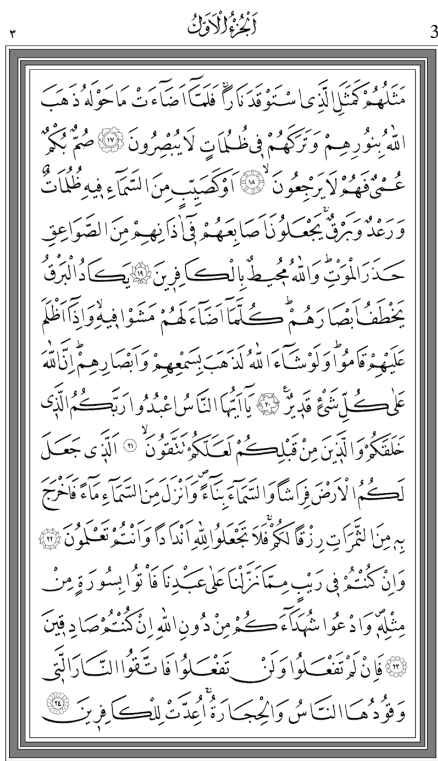 ٣ اَلْجُزْءُ الْاَوَّلُ 3
مَثَلُهُمْ كَمَثَلِ الَّذِى اسْتَوْقَدَ نَارًاۚ فَلَمَّٓا اَضَٓاءَتْ مَا حَوْلَهُ ذَهَبَ
اللّٰهُ بِنُورِهِمْ وَتَرَكَهُمْ فِى ظُلُمَاتٍ لَا يُبْصِرُونَ ﴿١٧﴾ صُمٌّ بُكْمٌ
عُمْىٌ فَهُمْ لَا يَرْجِعُونَۙ ﴿١٨﴾ اَوْ كَصَيِّبٍ مِنَ السَّمَٓاءِ فِيهِ ظُلُمَاتٌ
وَرَعْدٌ وَبَرْقٌۚ يَجْعَلُونَ اَصَابِعَهُمْ فِٓى اٰذَانِهِمْ مِنَ الصَّوَاعِقِ
حَذَرَ الْمَوْتِۜ وَاللّٰهُ مُحِيطٌ بِالْكَافِرِينَ ﴿١٩﴾ يَكَادُ الْبَرْقُ
يَخْطَفُ اَبْصَارَهُمْۜ كُلَّمَٓا اَضَٓاءَ لَهُمْ مَشَوْا فِيهِۙ وَاِذَٓا اَظْلَمَ
عَلَيْهِمْ قَامُواۜ وَلَوْ شَٓاءَ اللّٰهُ لَذَهَبَ بِسَمْعِهِمْ وَاَبْصَارِهِمْۜ اِنَّ اللّٰهَ
عَلٰى كُلِّ شَىْءٍ قَدِيرٌ۟ ﴿٢٠﴾ يَٓا اَيُّهَا النَّاسُ اعْبُدُوا رَبَّكُمُ الَّذِى
خَلَقَكُمْ وَالَّذِينَ مِنْ قَبْلِكُمْ لَعَلَّكُمْ تَتَّقُونَۙ ﴿٢١﴾ اَلَّذِى جَعَلَ
لَكُمُ الْاَرْضَ فِرَاشًا وَالسَّمَٓاءَ بِنَٓاءًۖ وَاَنْزَلَ مِنَ السَّمَٓاءِ مَٓاءً فَاَخْرَجَ
بِهِ مِنَ الثَّمَرَاتِ رِزْقًا لَكُمْۚ فَلَا تَجْعَلُوا لِلّٰهِ اَنْدَادًا وَاَنْتُمْ تَعْلَمُونَ ﴿٢٢﴾
وَاِنْ كُنْتُمْ فِى رَيْبٍ مِمَّا نَزَّلْنَا عَلٰى عَبْدِنَا فَاْتُوا بِسُورَةٍ مِنْ
مِثْلِهِۖ وَادْعُوا شُهَدَٓاءَكُمْ مِنْ دُونِ اللّٰهِ اِنْ كُنْتُمْ صَادِقِينَ
﴿٢٣﴾ فَاِنْ لَمْ تَفْعَلُوا وَلَنْ تَفْعَلُوا فَاتَّقُوا النَّارَ الَّتِى
وَقُودُهَا النَّاسُ وَالْحِجَارَةُۚ اُعِدَّتْ لِلْكَافِرِينَ ﴿٢٤﴾